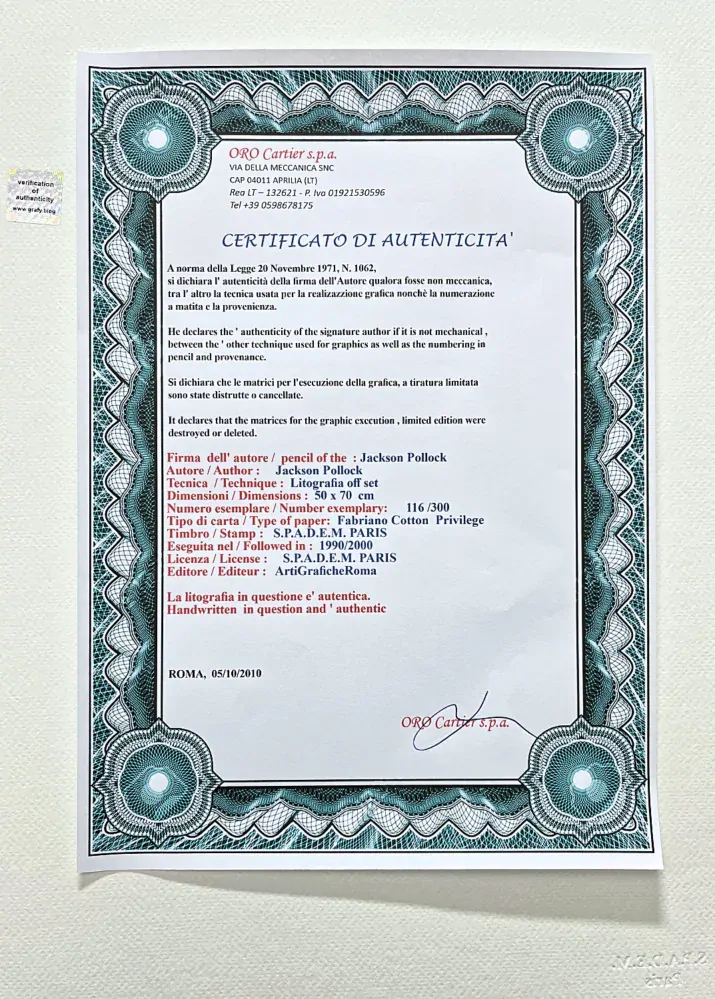 verification
of
authenticity
www.grafy.blog
ORO Cartier s.p.a.
VIA DELLA MECCANICA SNC
CAP 04011 APRILIA (LT)
Rea LT – 132621 - P. Iva 01921530596
Tel +39 0598678175
CERTIFICATO DI AUTENTICITA'
A norma della Legge 20 Novembre 1971, N. 1062,
si dichiara l' autenticità della firma dell'Autore qualora fosse non meccanica,
tra l' altro la tecnica usata per la realizazzione grafica nonchè la numerazione
a matita e la provenienza.
He declares the ' authenticity of the signature author if it is not mechanical ,
between the ' other technique used for graphics as well as the numbering in
pencil and provenance.
Si dichiara che le matrici per l'esecuzione della grafica, a tiratura limitata
sono state distrutte o cancellate.
It declares that the matrices for the graphic execution , limited edition were
destroyed or deleted.
Firma dell' autore / pencil of the : Jackson Pollock
Autore / Author : Jackson Pollock
Tecnica / Technique : Litografia off set
Dimensioni / Dimensions : 50 x 70 cm
Numero esemplare / Number exemplary: 116 /300
Tipo di carta / Type of paper: Fabriano Cotton Privilege
Timbro / Stamp : S.P.A.D.E.M. PARIS
Eseguita nel / Followed in : 1990/2000
Licenza / License : S.P.A.D.E.M. PARIS
Editore / Editeur : ArtiGraficheRoma
La litografia in questione e' autentica.
Handwritten in question and ' authentic
ROMA, 05/10/2010
ORO Cartier s.p.a.
S.P.A.D.E.M.
Paris